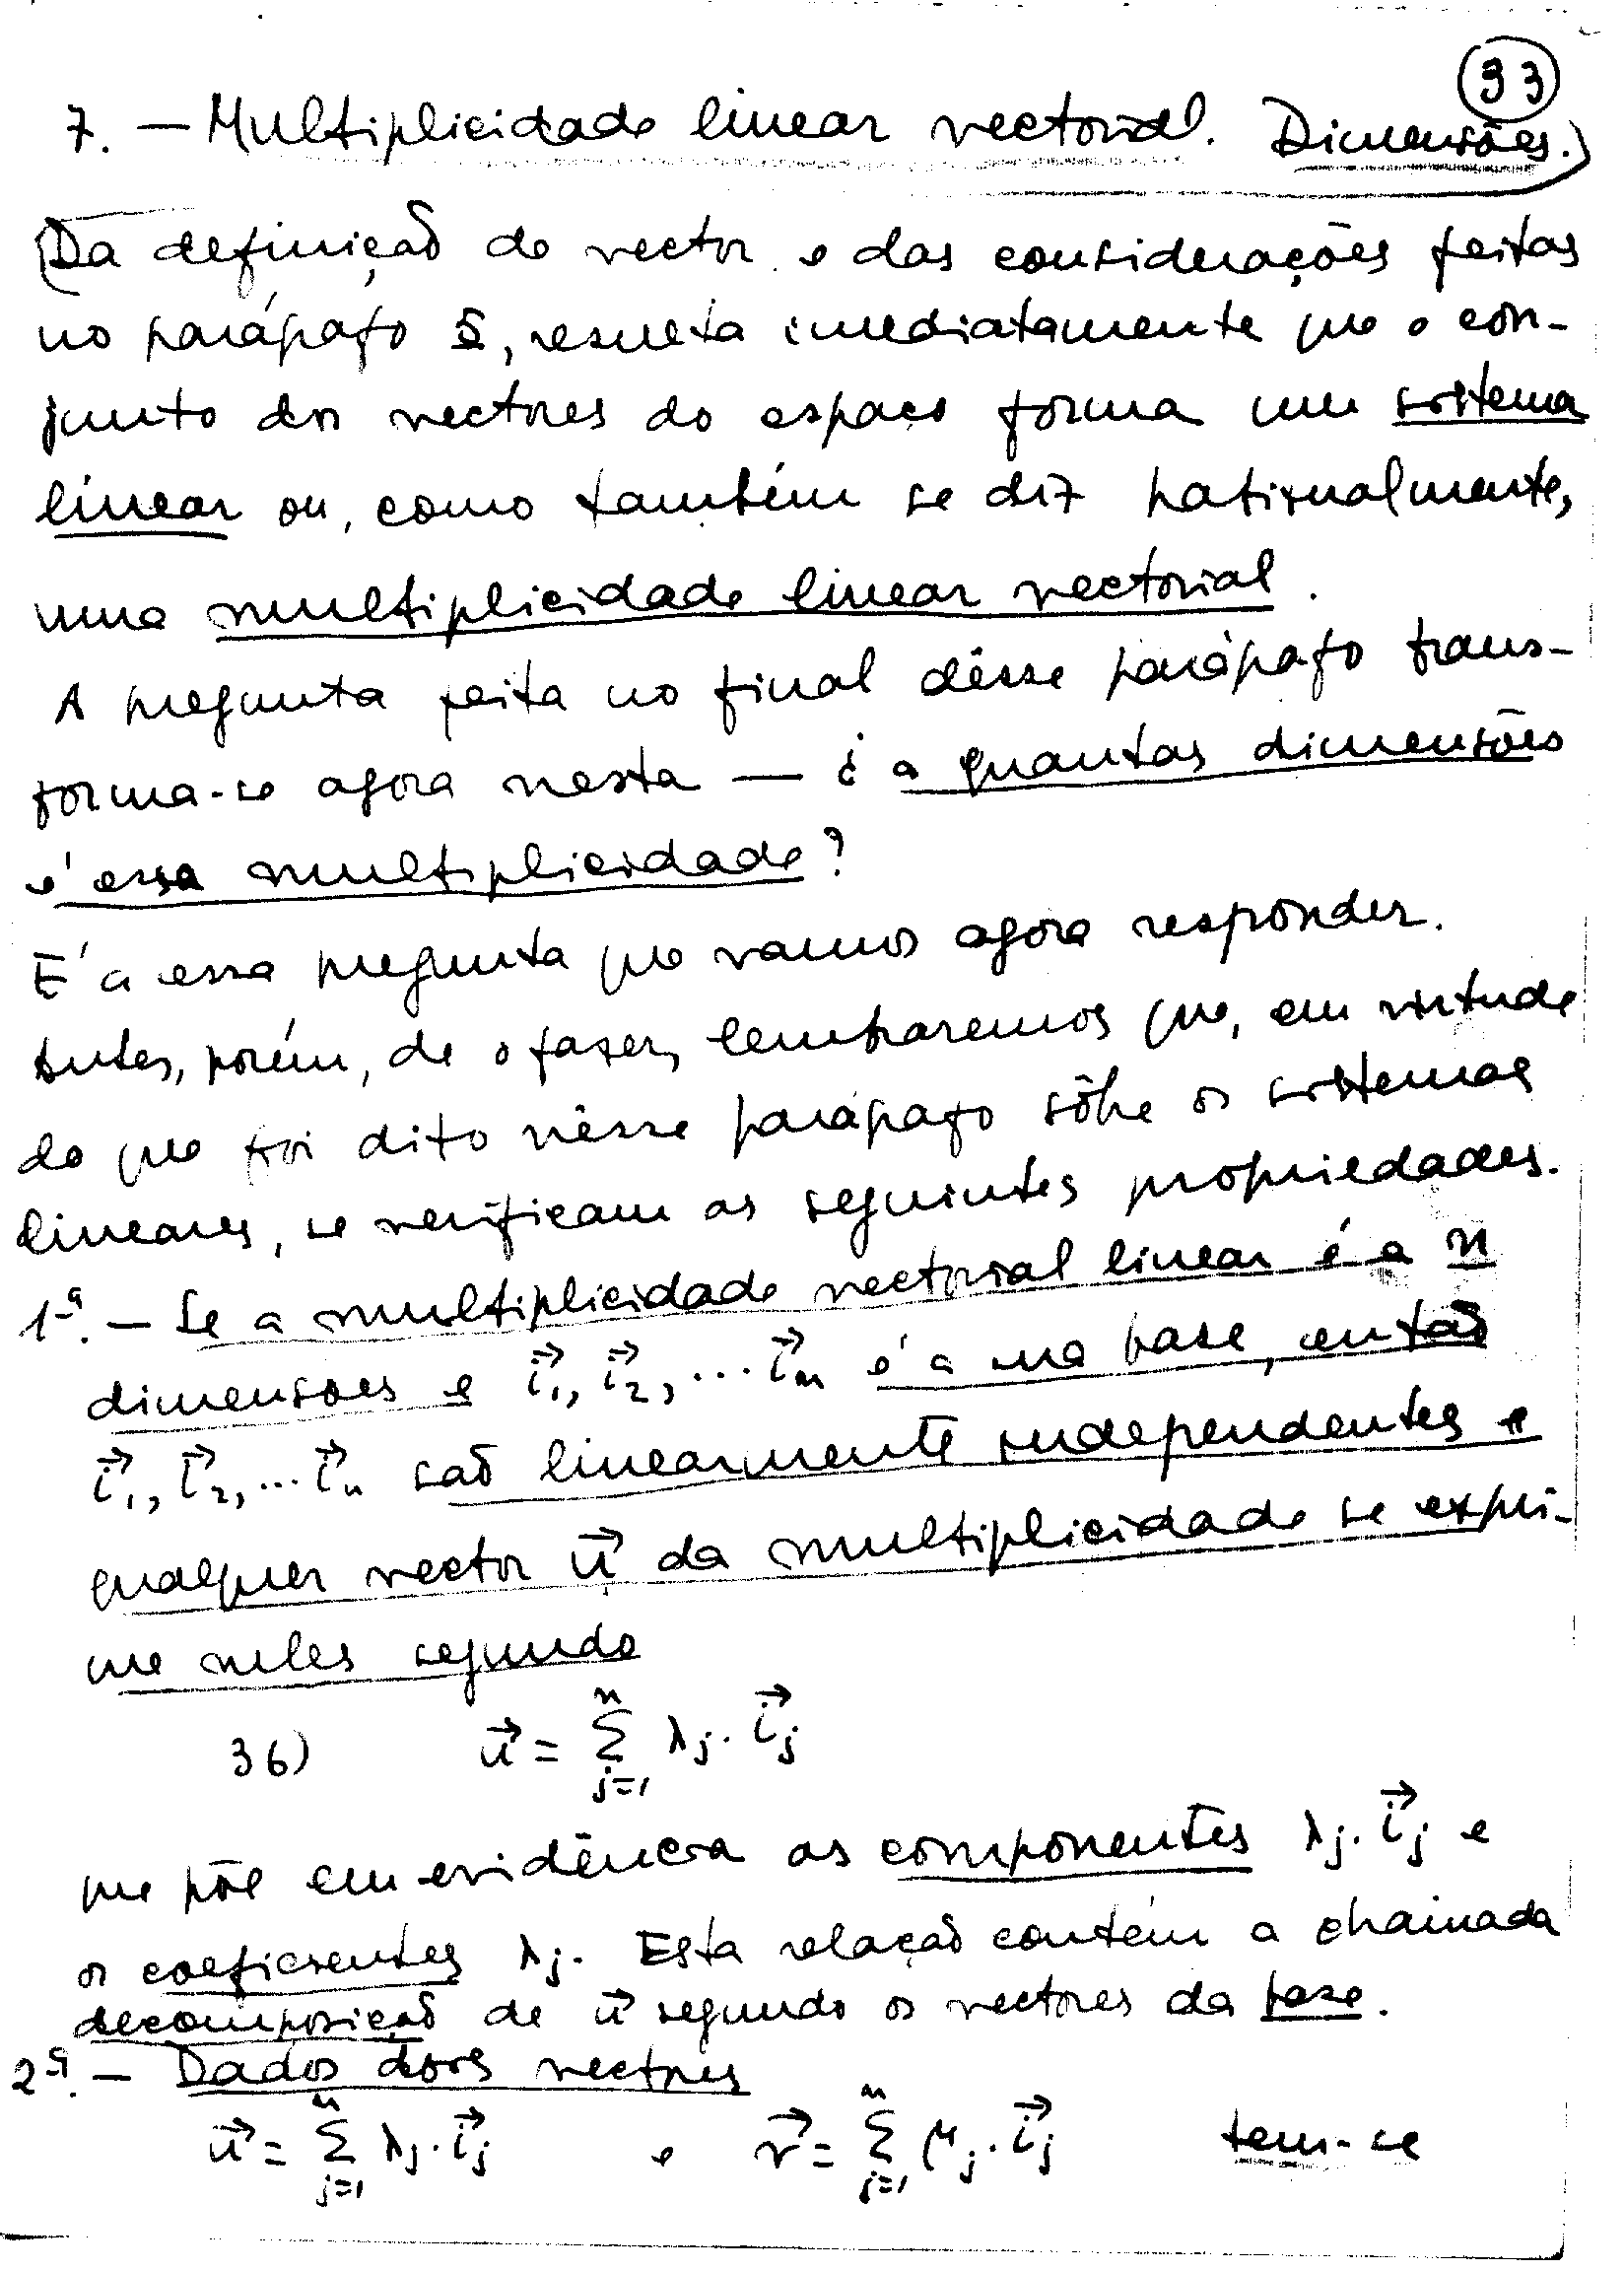 33
7. — Multiplicidade linear vectorial. Dimensões.
Da definição de vector e das considerações feitas
no parágrafo 5, resulta imediatamente que o con-
junto dos vectores do espaço forma um sistema
linear ou, como também se diz habitualmente,
uma multiplicidade linear vectorial.
A pregunta feita no final dêsse parágrafo trans-
forma-se agora nesta — ¿ a quantas dimensões
é essa multiplicidade?
É a essa pregunta que vamos agora responder.
Antes, porém, de o fazer, lembraremos que, em virtude
do que foi dito nêsse parágrafo sôbre os sistemas
lineares, se verificam as seguintes propriedades.
1ª. — Se a multiplicidade vectorial linear é a n
dimensões e i⃗₁, i⃗₂, ... i⃗ₙ é a sua base, então
i⃗₁, i⃗₂, ... i⃗ₙ são linearmente independentes e
qualquer vector u⃗ da multiplicidade se expri-
me neles segundo
36) u⃗ = Σⁿⱼ₌₁ λⱼ . i⃗ⱼ
que põe em evidência as componentes λⱼ . i⃗ⱼ e
os coeficientes λⱼ. Esta relação contém a chamada
decomposição de u⃗ segundo os vectores da base.
2ª. — Dados dois vectores
u⃗ = Σⁿⱼ₌₁ λⱼ . i⃗ⱼ e v⃗ = Σⁿⱼ₌₁ μⱼ . i⃗ⱼ tem-se